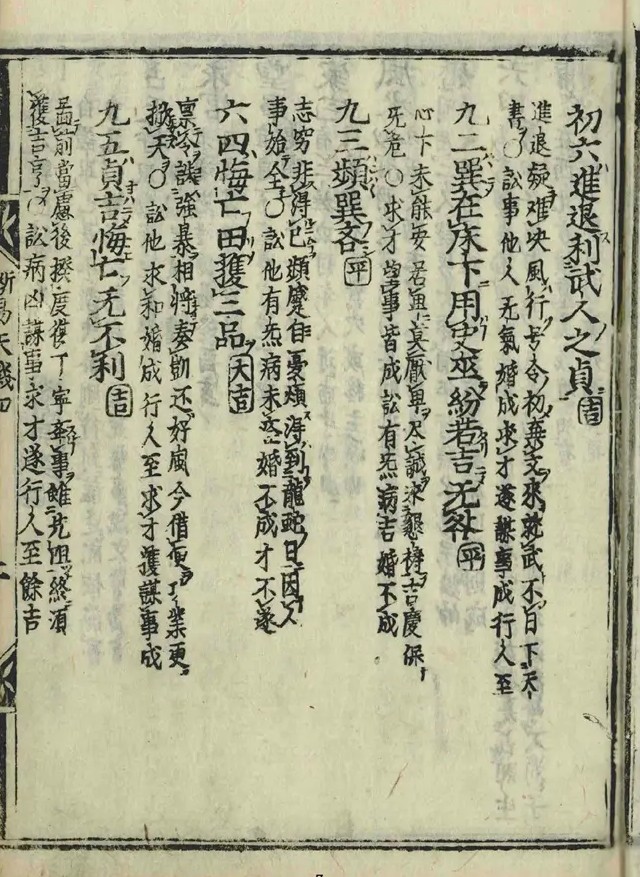 初六進退利武人之貞 吉
進退疑難決風行号令初棄文来就武不日下天
書〇訟事他人无氣婚成求才遂謀事成行人至
九二巽在床下用史巫紛若吉无咎 平
心下未能安居卑莫厭卑尽誠求懇禱吉慶保
死危〇求才望事皆成訟有炁病吉婚不成
九三頻巽吝 平
志窮非得已頻蹙自憂煩得到龍蛇日因人
事始全〇訟他有炁病未痊婚不成才不遂
六四悔亡田獲三品 大吉
禀令誅強暴相將奏凱还好風今借便了業更
天〇訟他求和婚成行人至求才獲謀事成
九五貞吉悔亡无不利 吉
前當慮後揆度復丁寧舉事雖先阻終須
獲吉亨〇訟病凶謀事求才遂行人至餘吉